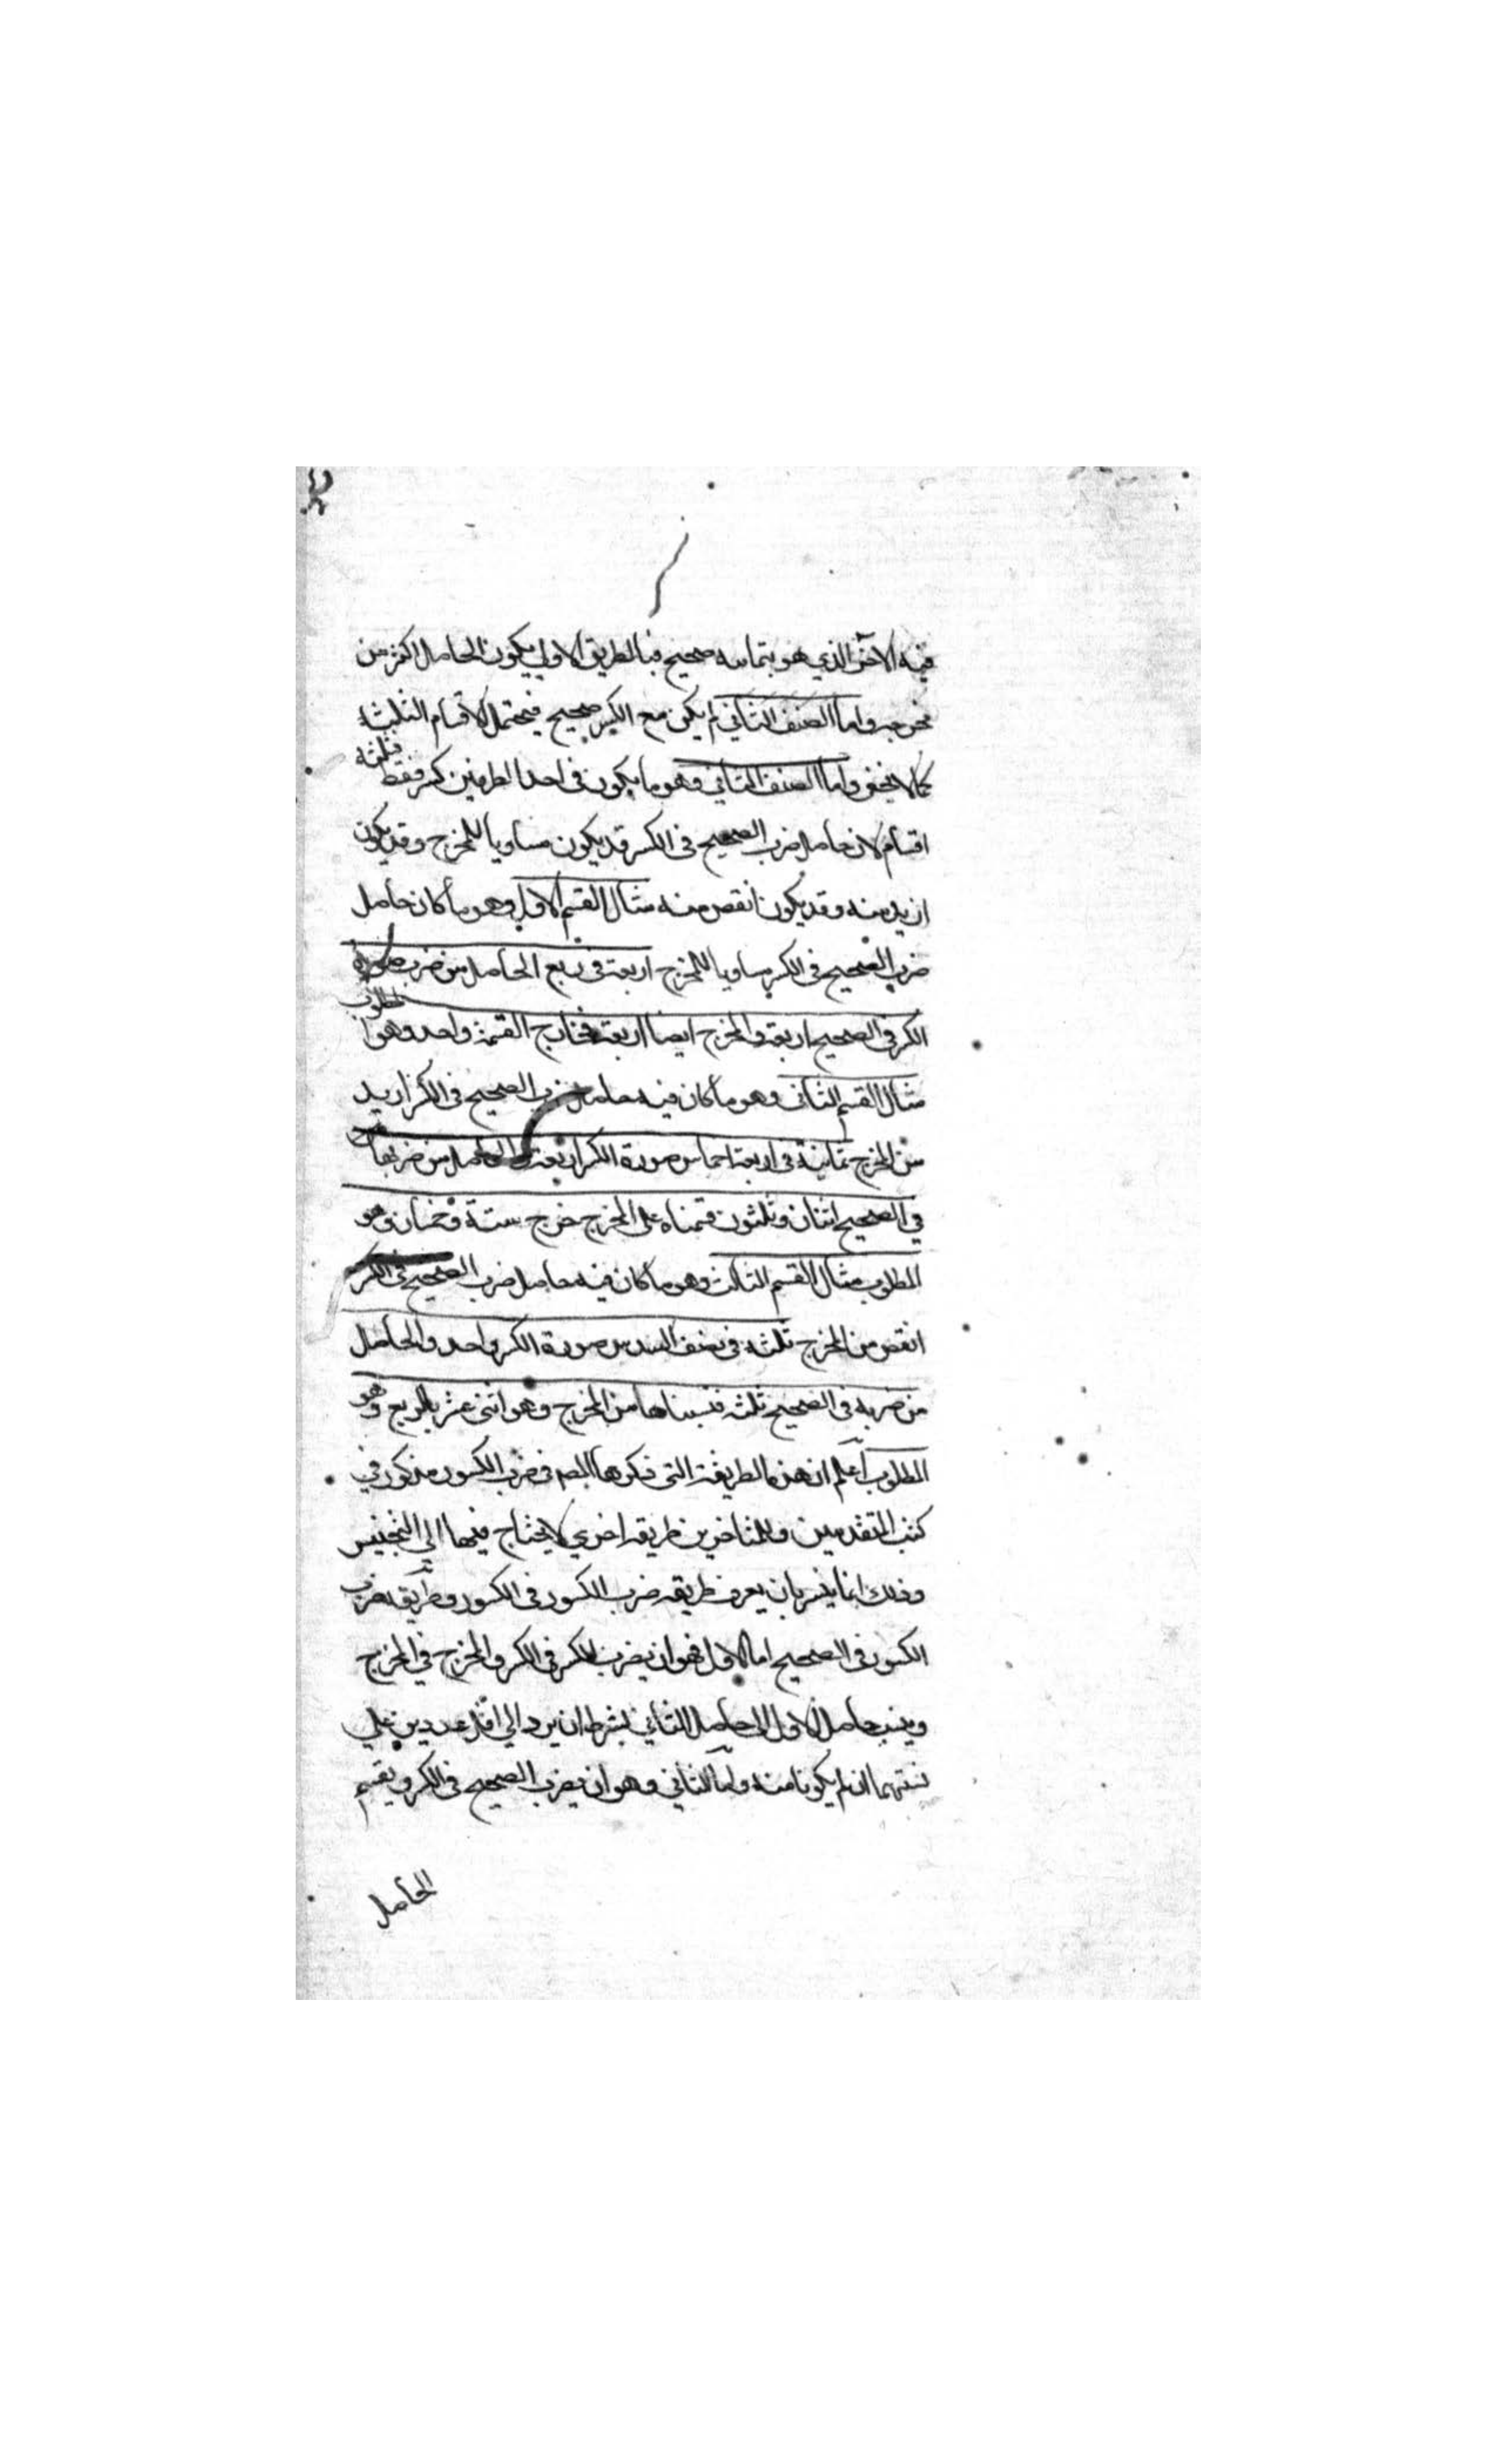 فيه الاخر الذي هو بتمامه صحيح فبالطريق الاولي يكون الحاصل اكثر من
مخرجه واما الصنف الثاني لم يكن مع الكسر صحيح فيحتمل الاقسام الثلثة
كما لا يخفى واما الصنف الثاني وهو ما يكون في احد الطرفين كسر فقط فثلثة
اقسام لان حاصل ضرب الصحيح في الكسر قد يكون مساويا للمخرج وقد يكون
ازيد منه وقد يكون انقص منه مثال القسم الاول وهو ما كان حاصل
ضرب الصحيح في الكسر مساويا للمخرج اربعة في ربع الحاصل من ضرب صورة
الكسر في الصحيح اربعة والمخرج ايضا اربعة فخارج القسمة واحد وهو المطلوب
مثال القسم الثاني وهو ما كان فيه حاصل ضرب الصحيح في الكسر ازيد
من المخرج ثمانية في اربعة اخماس صورة الكسر اربعة والحاصل من ضربها
في الصحيح اثنان وثلثون قسمناه على المخرج خرج ستة وخمسان وهو
المطلوب مثال القسم الثالث وهو ما كان فيه حاصل ضرب الصحيح في الكسر
انقص من المخرج ثلثة في نصف السدس صورة الكسر واحد والحاصل
من ضربه في الصحيح ثلثة فنسبناها من المخرج وهو اثنى عشر بالربع وهو
المطلوب اعلم ان هذه الطريقة التي ذكرها المص في ضرب الكسور مذكور في
كتب المتقدمين وللمتاخرين طريقة اخري لا يحتاج فيها الي التجنيس
وذلك انما يتيسر بان يعرف طريقة ضرب الكسور في الكسور وطريقة ضرب
الكسور في الصحيح اما الاول فهو ان يضرب الكسر في الكسر والمخرج في المخرج
وينسب حاصل الاول الى حاصل الثاني بشرط ان يرد الي اقل عددين علي
نسبتهما ان لم يكونا منه واما الثاني وهو ان يضرب الصحيح في الكسر ويقسم
الحاصل